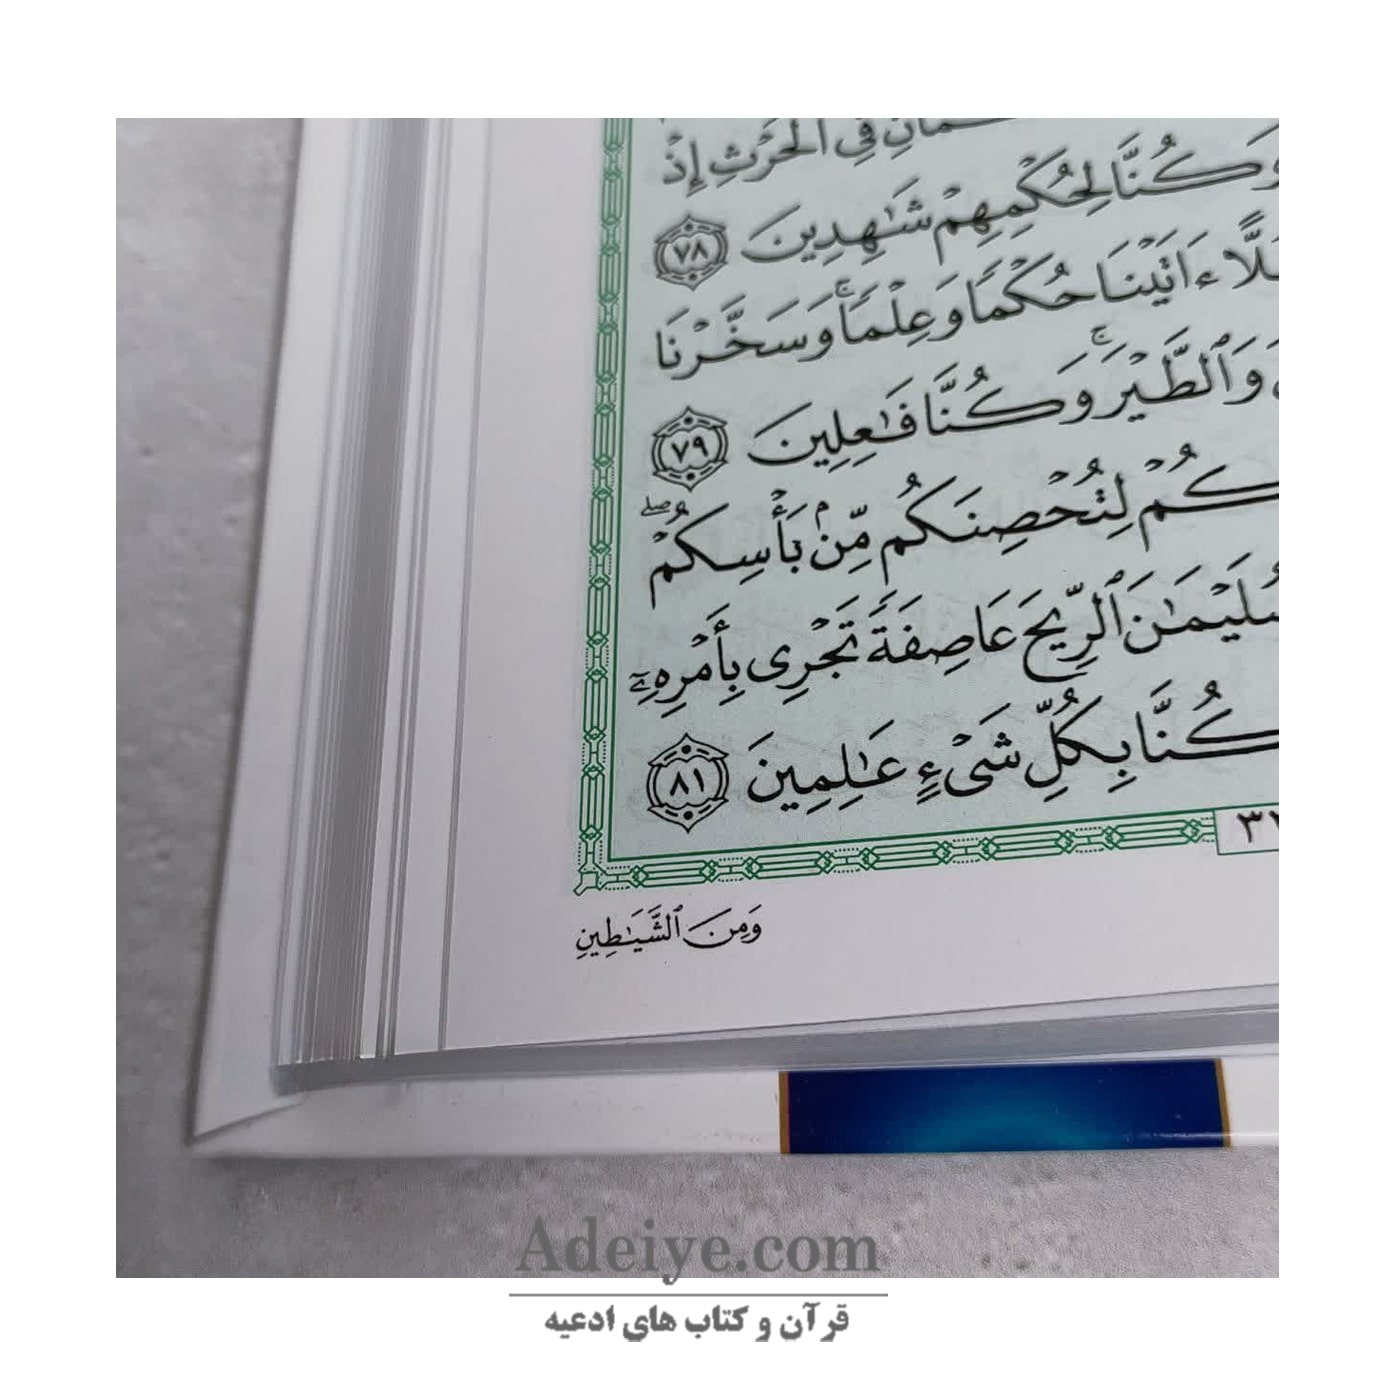 فِي ٱلْحَرْثِ إِذْ
وَكُنَّا لِحُكْمِهِمْ شَٰهِدِينَ ٧٨
ءَاتَيْنَا حُكْمًا وَعِلْمًا ۚ وَسَخَّرْنَا
وَٱلطَّيْرَ ۚ وَكُنَّا فَٰعِلِينَ ٧٩
لِتُحْصِنَكُم مِّنۢ بَأْسِكُمْ ۖ
ٱلرِّيحَ عَاصِفَةً تَجْرِى بِأَمْرِهِۦٓ
كُنَّا بِكُلِّ شَىْءٍ عَٰلِمِينَ ٨١
وَمِنَ ٱلشَّيَٰطِينِ
Adeiye.com
قرآن و کتاب های ادعیه